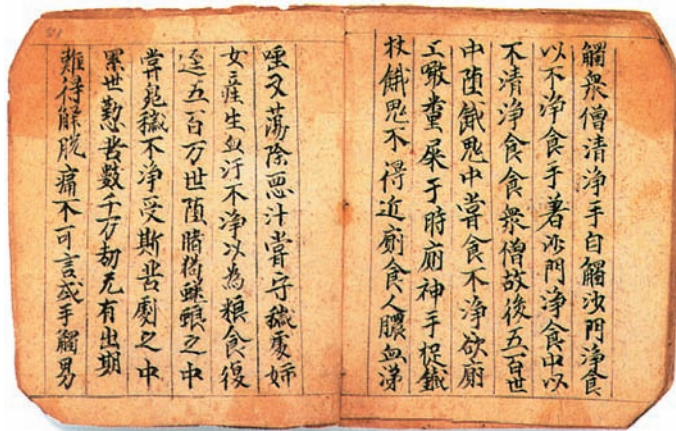 觸衆僧清淨手自觸沙門淨食
以不净食手著沙門淨食中以
不清净食食衆僧故後五百世
中堕餓鬼中常食不净欲廁
上噉糞屎于時廁神手捉鐵
杖餓鬼不得近廁食人膿血涕
唾又蕩除惡汁常守穢處婦
女產生血汙不净以為粮食復
逕五百万世堕賭猪蜣蜋之中
常㒵穢不净受斯苦劇之中
累世懃苦數千万劫无有出期
難得解脱痛不可言或手觸男